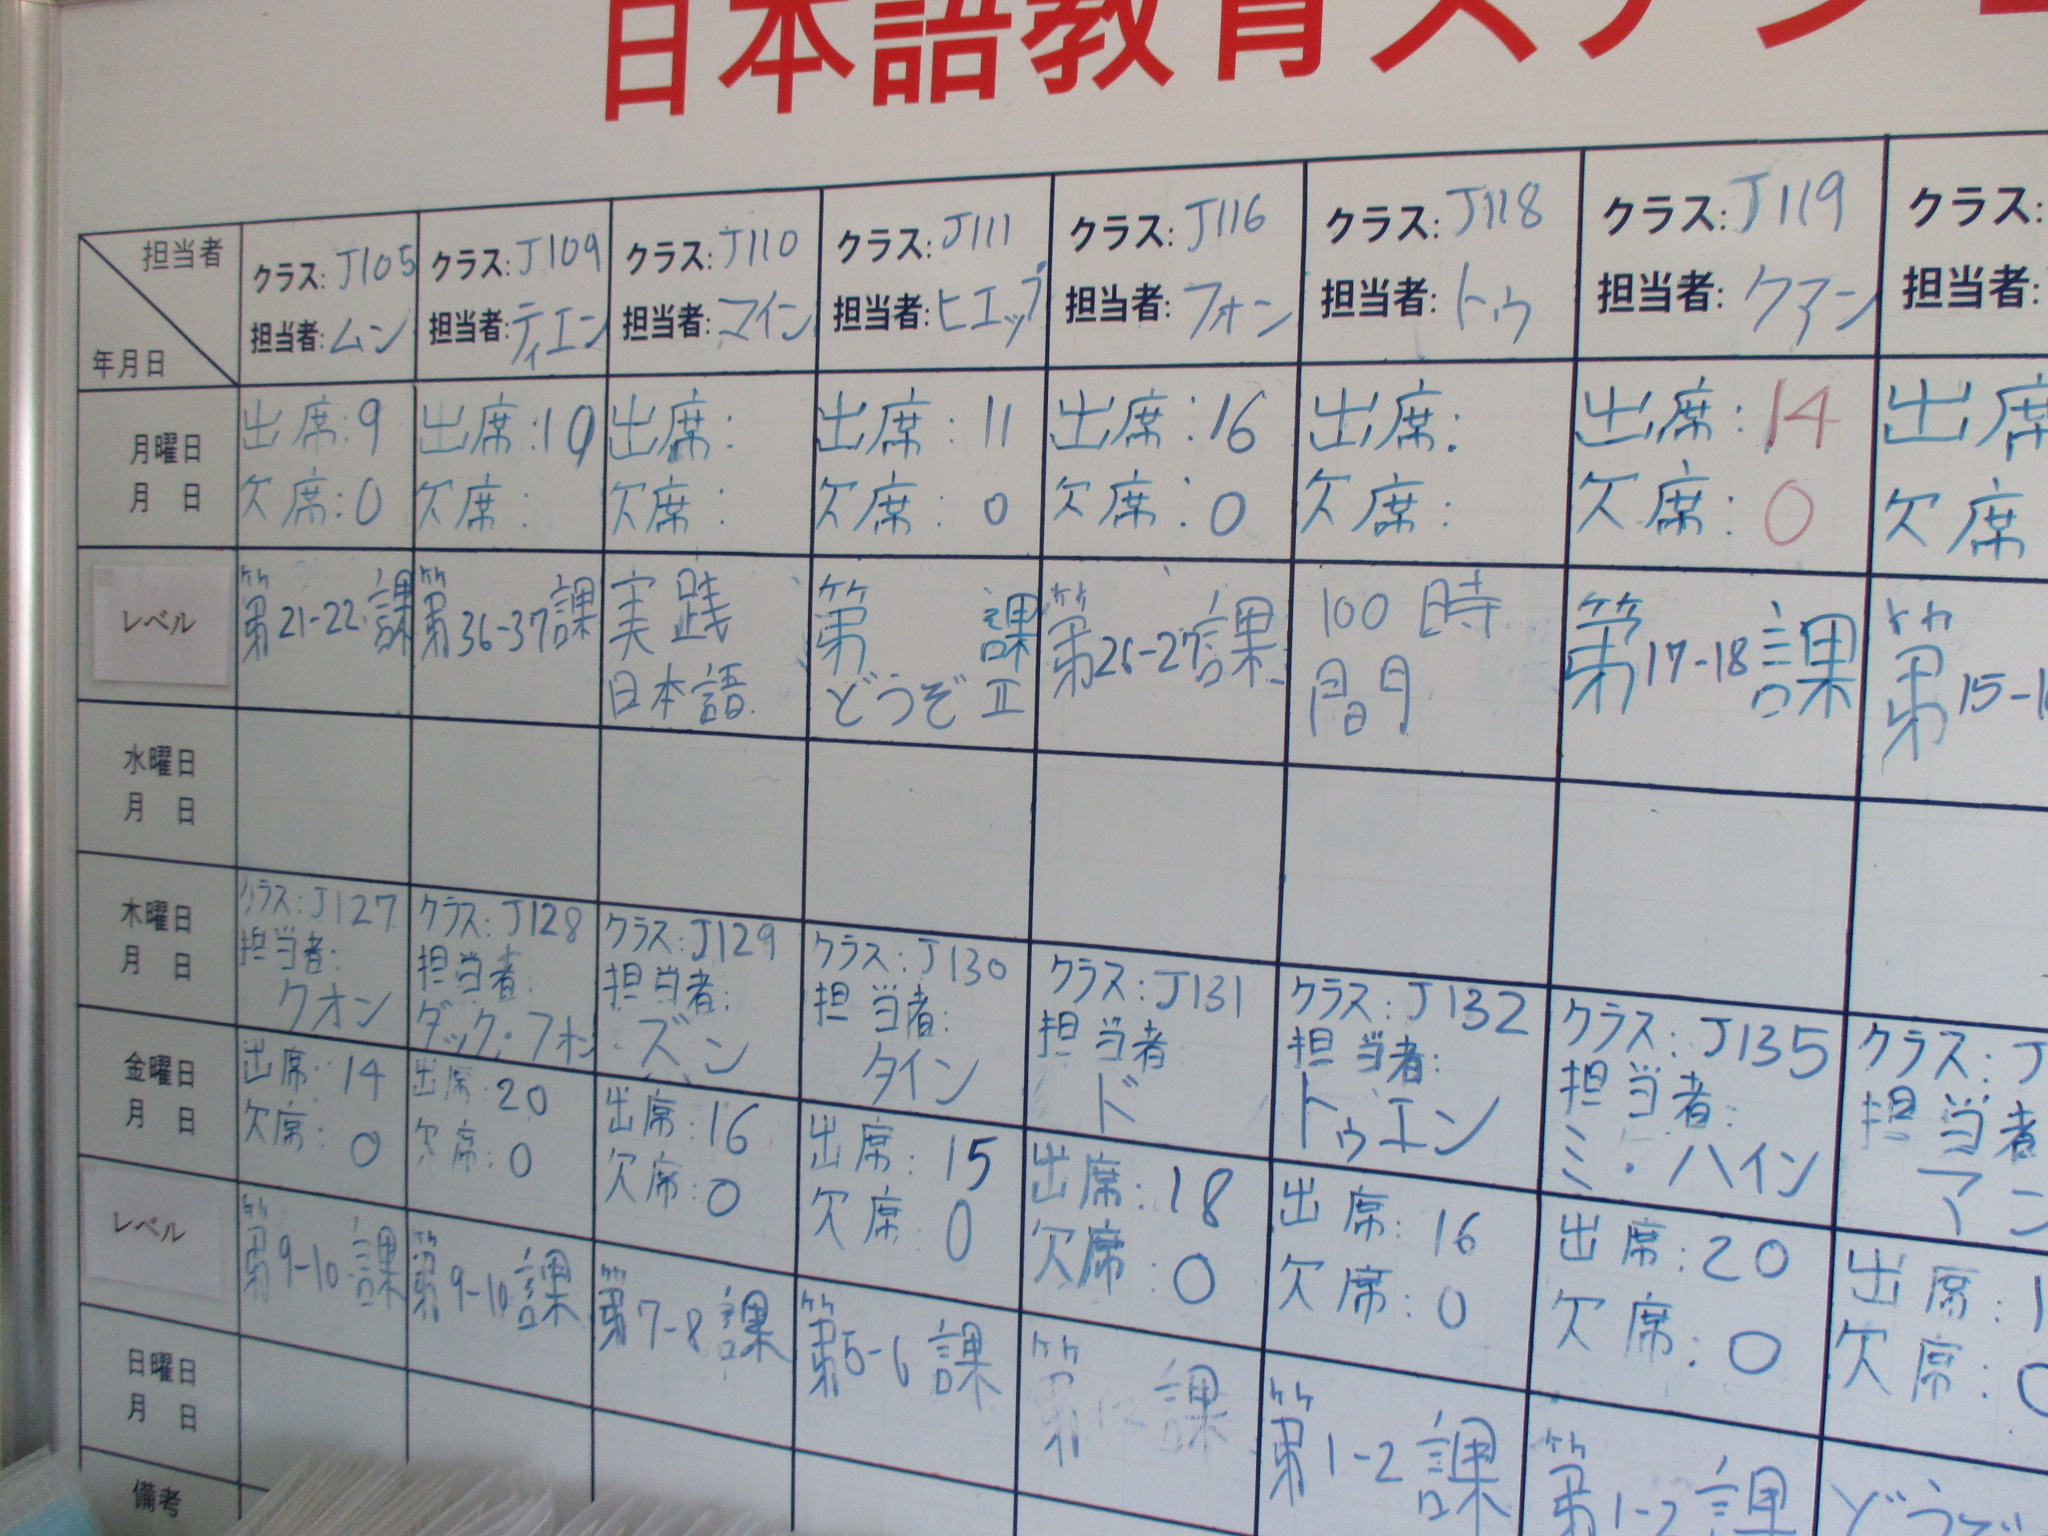 日本語教育スケジ
担当者
年月日
クラス: J105
担当者: ムン
クラス: J109
担当者: ティエン
クラス: J110
担当者: マイン
クラス: J111
担当者: ヒエップ
クラス: J116
担当者: フォン
クラス: J118
担当者: トゥ
クラス: J119
担当者: クアン
クラス:
担当者:
月曜日
月 日
出席: 9
欠席: 0
出席: 10
欠席:
出席:
欠席:
出席: 11
欠席: 0
出席: 16
欠席: 0
出席:
欠席:
出席: 14
欠席: 0
出席
欠席
レベル
第21-22課
第36-37課
実践
日本語
第 課
どうぞ II
第26-27課
100時
間
第17-18課
第15-1
水曜日
月 日
木曜日
月 日
クラス: J127
担当者:
クオン
クラス: J128
担当者:
ダック・フォン
クラス: J129
担当者:
ズン
クラス: J130
担当者:
タイン
クラス: J131
担当者
ド
クラス: J132
担当者:
トゥエン
クラス: J135
担当者:
ミ・ハイン
クラス: J
担当者
アン
金曜日
月 日
出席: 14
欠席: 0
出席: 20
欠席: 0
出席: 16
欠席: 0
出席: 15
欠席: 0
出席: 18
欠席: 0
出席: 16
欠席: 0
出席: 20
欠席: 0
出席: 1
欠席: 0
レベル
第9-10課
第9-10課
第7-8課
第5-6課
第1-2課
第1-2課
第1-2課
どうぞ
日曜日
月 日
備考